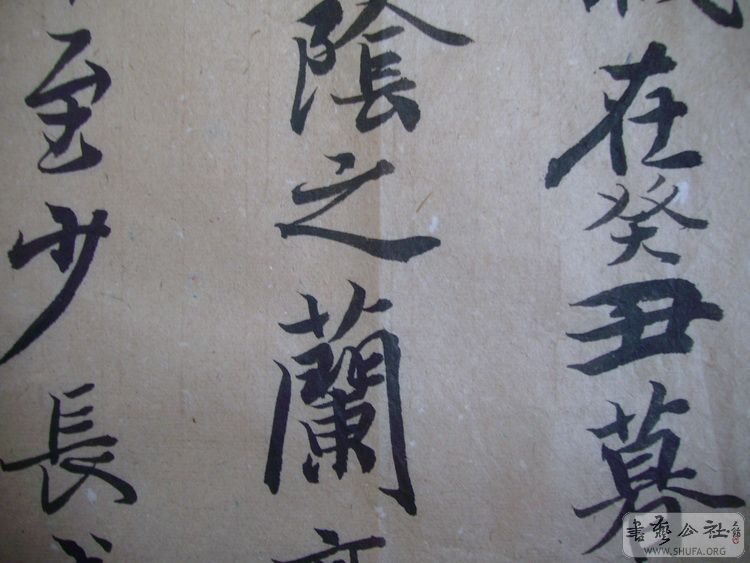 在癸丑暮
陰之蘭
至少長
書藝公社
WWW.SHUFA.ORG